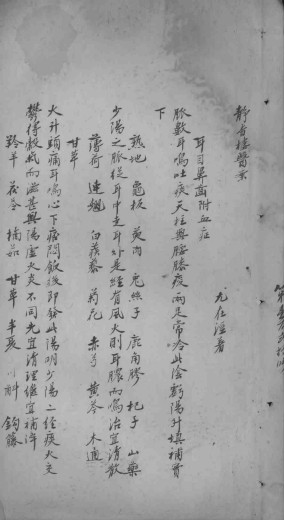 靜香樓醫案
尤在涇著
耳目鼻齒附血症
脈數耳鳴吐痰天柱與腰膝痠兩足常冷此陰虧陽升填補腎
下
熟地 龜板 萸肉 兔絲子 鹿角膠 杞子 山藥
少陽之脈從耳中走耳外是經有風火則耳膿而鳴治宜清散
薄荷 連翹 白蒺藜 菊花 赤芍 黃芩 木通
甘草
火升頭痛耳鳴心下痞悶飯後即發此陽明少陽二經痰火交
鬱得穀氣而滋甚與陽虛火炎不同先宜清理繼宜補降
羚羊 茯苓 橘 甘草 半夏 斛 鈎藤